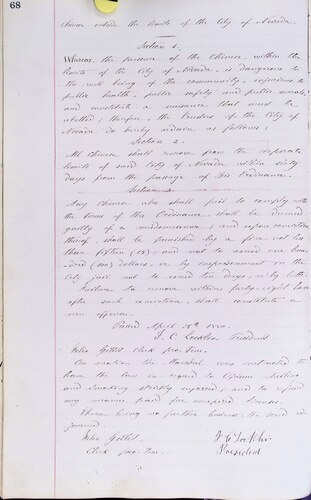 68
Chinese outside the limits of the City of Nevada.
Section 1.
Whereas, the presence of the Chinese within the
limits of the City of Nevada, is dangerous to
the well being of the community, injurious to
public health, public safety and public morals,
and constitute a nuisance that must be
abated; therefore, the Trustees of the City of
Nevada do hereby ordain as follows:
Section 2.
All Chinese shall remove from the corporate
limits of said City of Nevada within sixty
days from the passage of this Ordinance.
Section 3.
Any Chinese who shall fail to comply with
the terms of this Ordinance, shall be deemed
guilty of a misdemeanor, and upon conviction
thereof, shall be punished by a fine not less
than fifteen (15) and not to exceed one hun-
dred (100) dollars, or by imprisonment in the
City jail not to exceed ten days, or by both.
Failure to remove within forty-eight hours
after such conviction, shall constitute a
new offense.
Passed April 1880.
President
Clerk pro. tem.
On motion the Marshal was instructed to
have the laws in regard to Opium
and smoking strictly enforced, and to refund
any money paid for unexpired licenses.
There being no further business, the board ad-
journed.
Clerk pro. tem. President